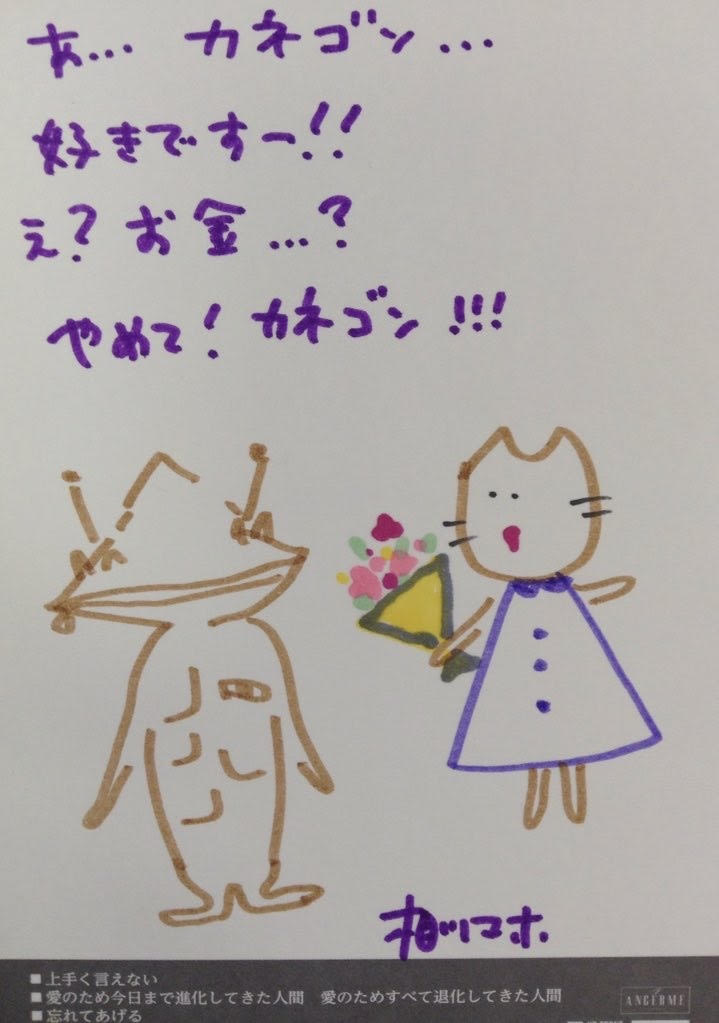 あ… カネゴン…
好きですー!!
え? お金…?
やめて! カネゴン!!!
相川マホ
■上手く言えない
■愛のため今日まで進化してきた人間 愛のためすべて退化してきた人間
■忘れてあげる
ANGERME